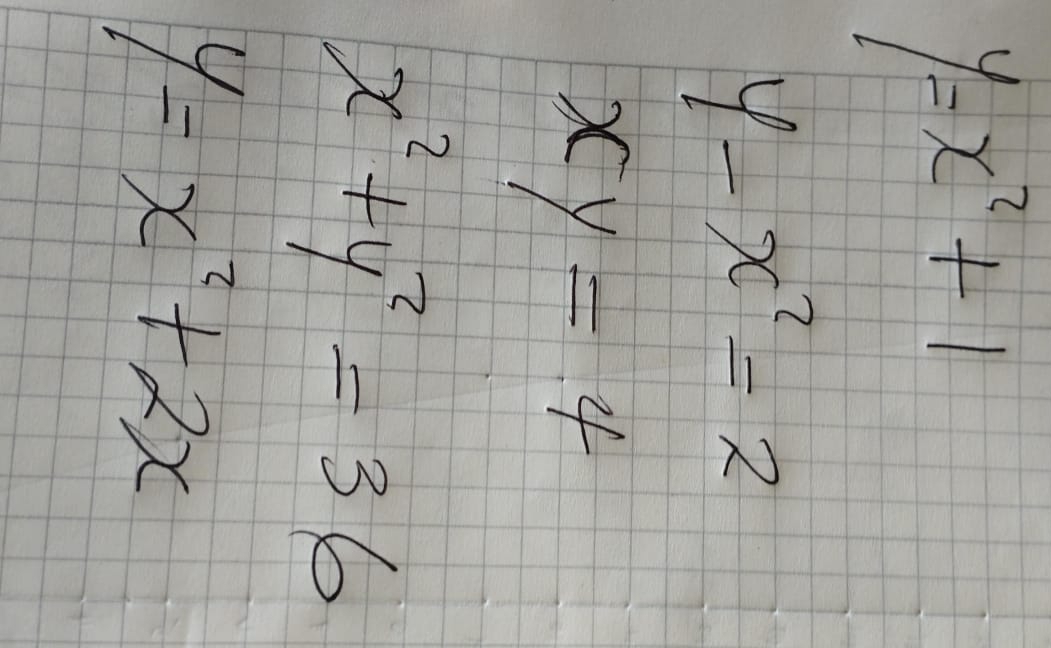 y = x² + 1
y - x² = 2
xy = 4
x² + y² = 36
y = x² + 2x